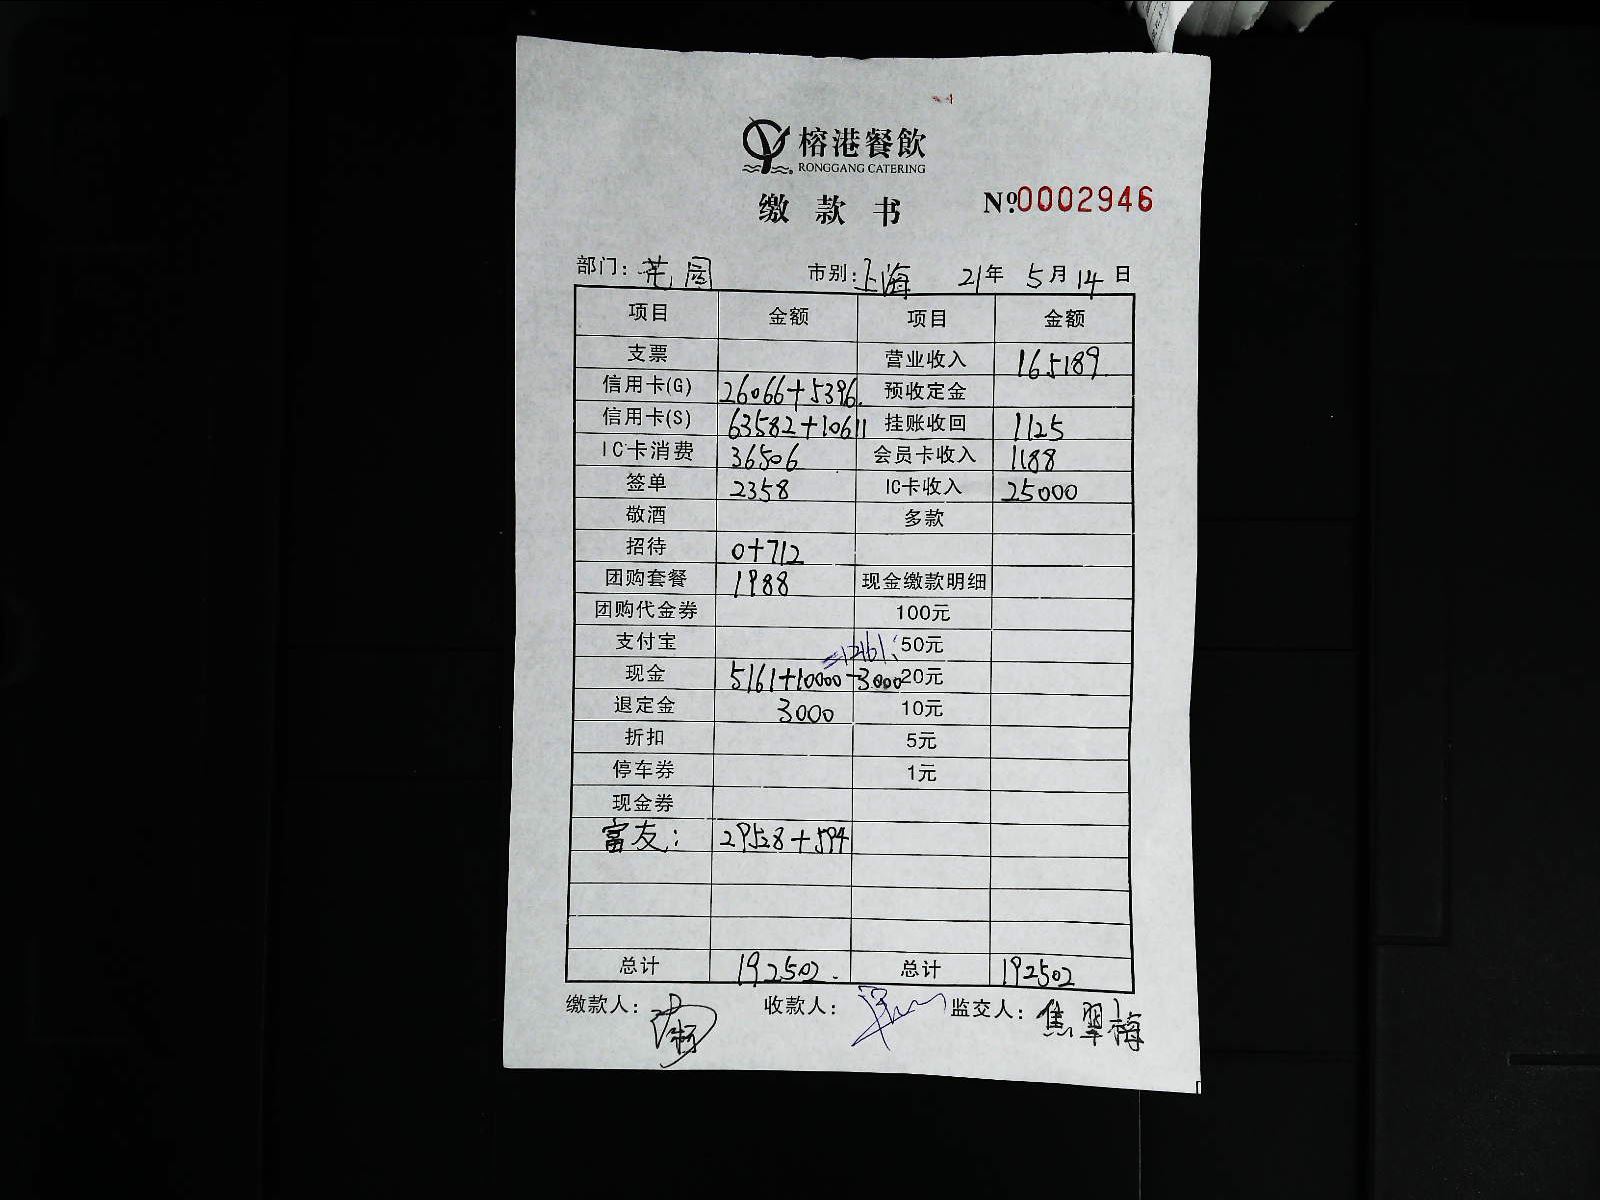 榕港餐飲
RONGGANG CATERING
缴款书 Nº.0002946
部门: 花园 市别: 上海 21年 5月14日
项目 金额 项目 金额
支票 营业收入 165189.
信用卡(G) 26066+5396. 预收定金
信用卡(S) 63582+10611 挂账收回 1125
IC卡消费 36506 会员卡收入 1188
签单 2358 IC卡收入 25000
敬酒 多款
招待 0+712
团购套餐 1988 现金缴款明细
团购代金券 100元
支付宝 =12161. 50元
现金 5161+10000-3000 20元
退定金 3000 10元
折扣 5元
停车券 1元
现金券
富友: 29528+594
总计 192502. 总计 192502
缴款人: 收款人: 监交人: 焦翠梅